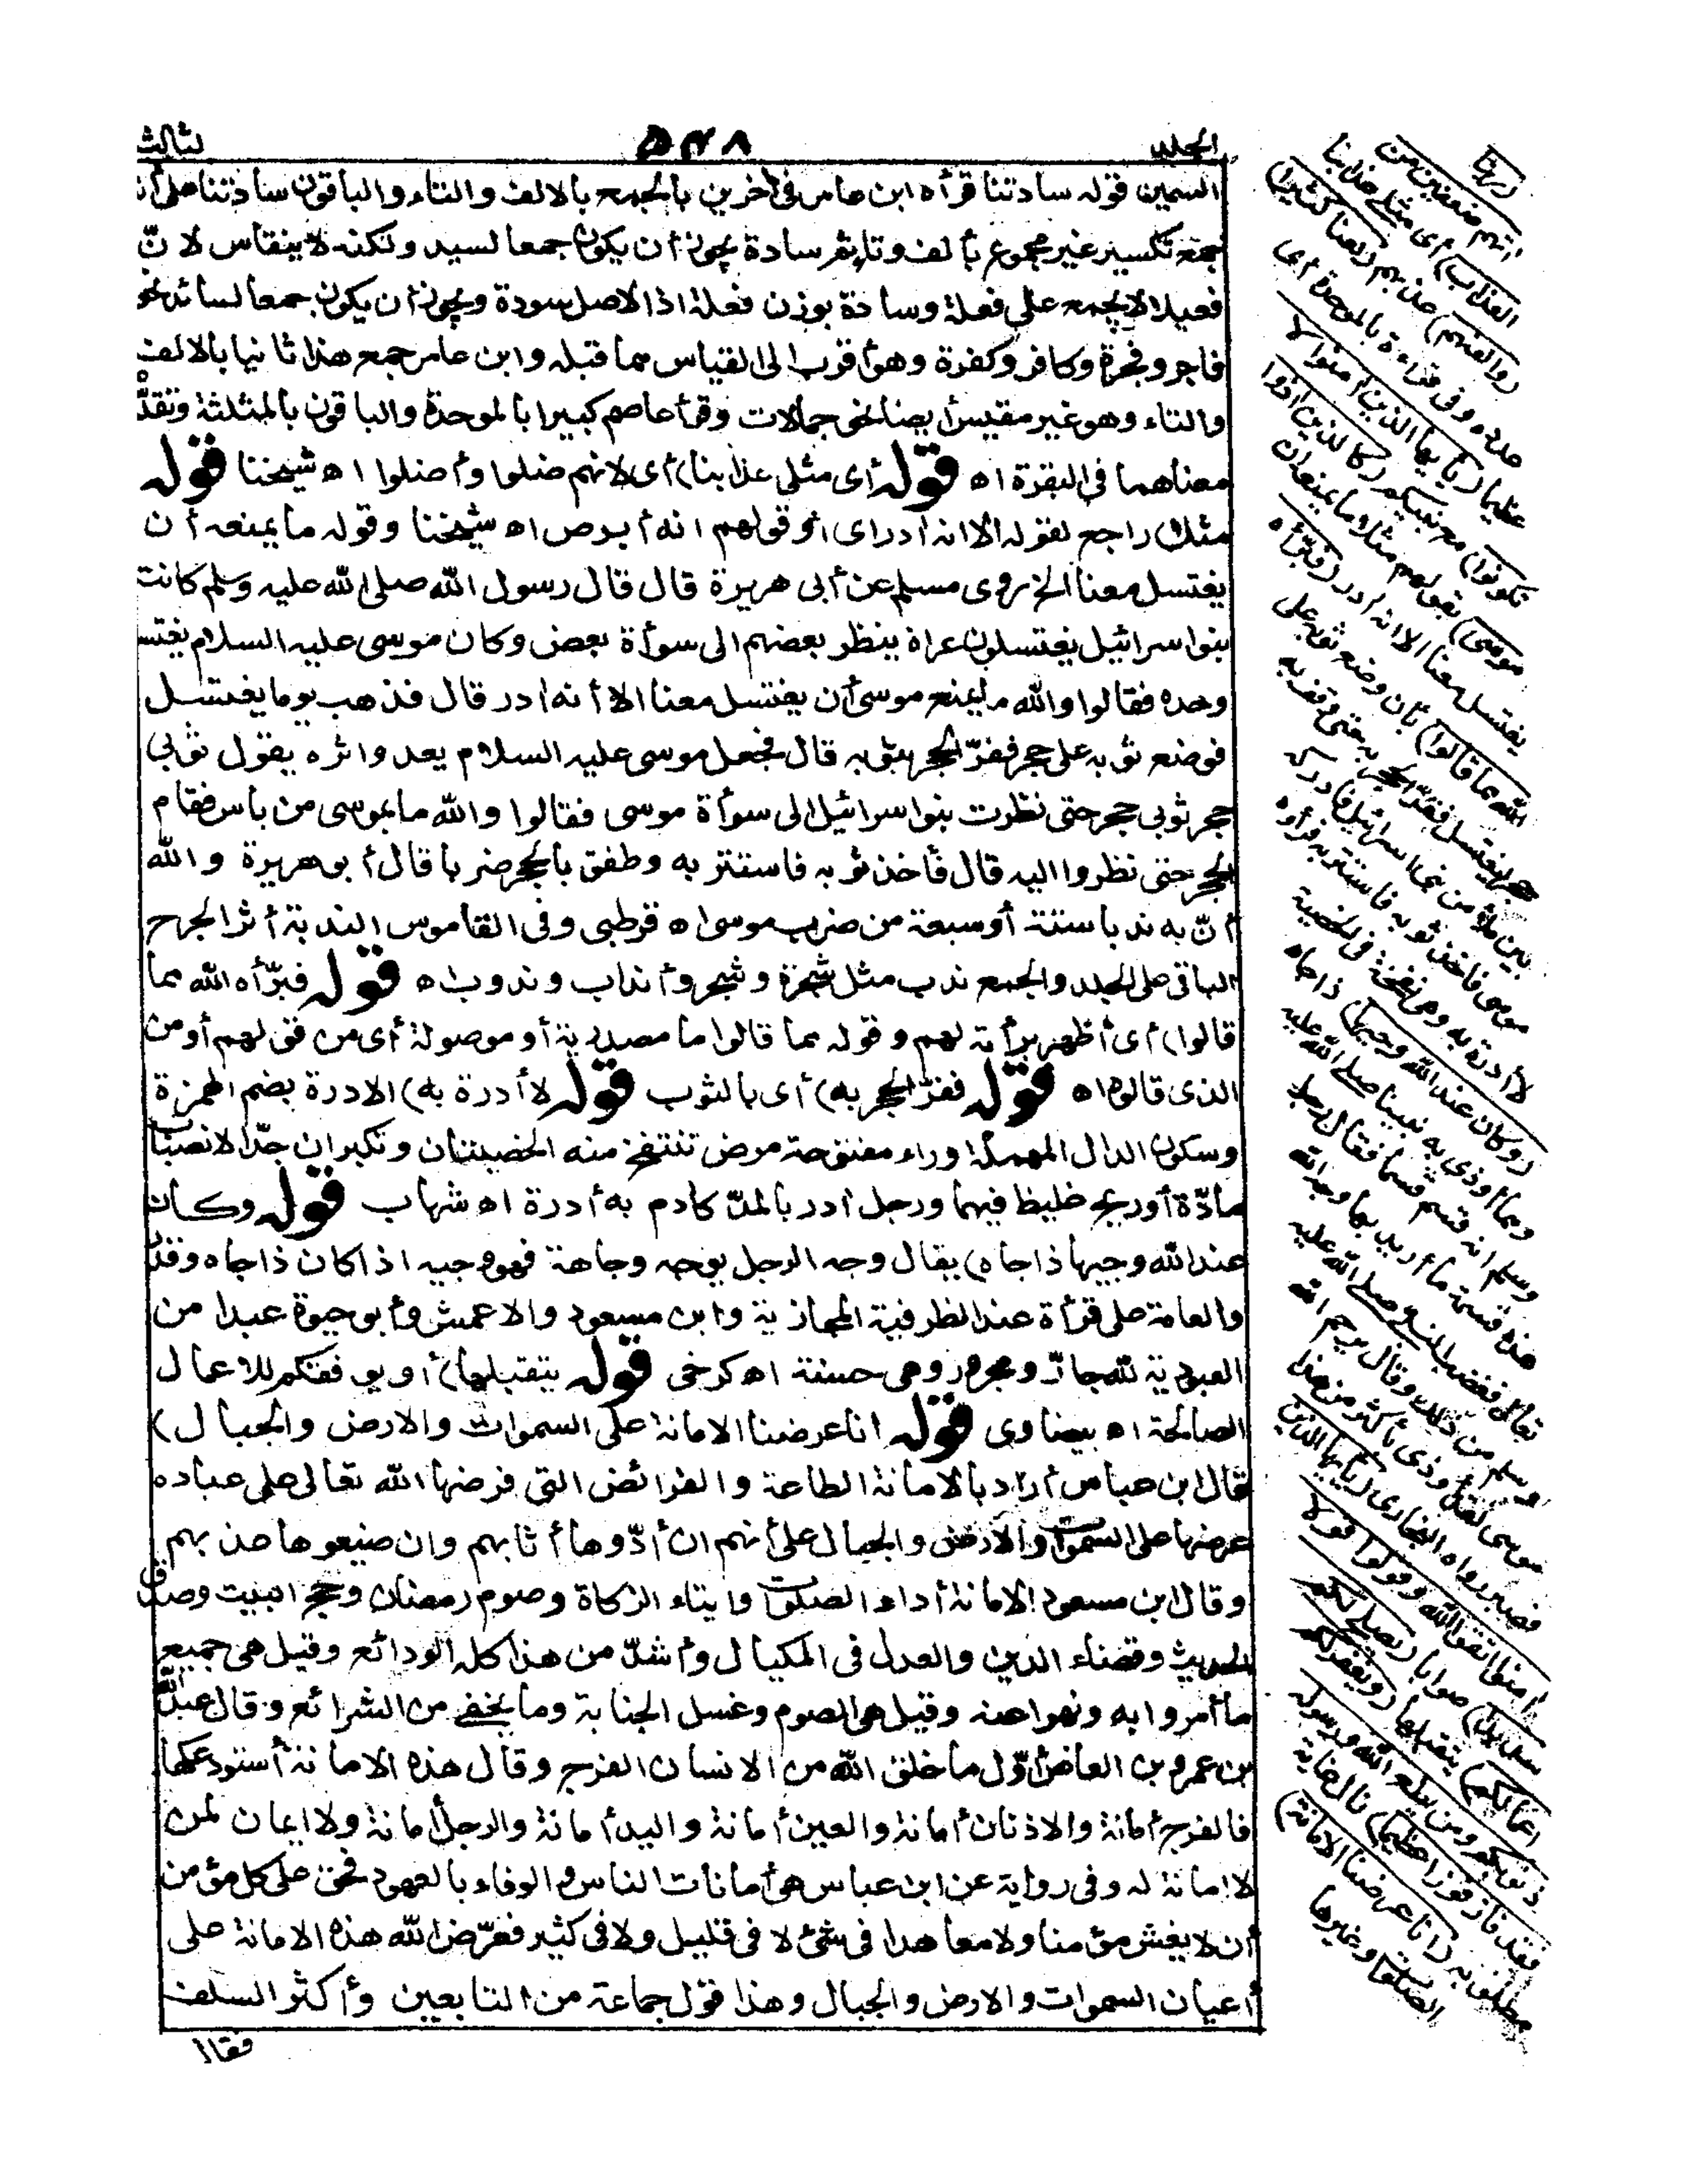 الجلد ٥٤٨ الثالث
السمين قوله سادتنا قرأه ابن عامر فى آخرين بالجمع بالالف والتاء والباقون سادتنا على أنه
جمع تكسير غير مجموع بألف وتاء ثم سادة يجوز أن يكون جمعا لسيد ولكنه لا ينقاس لانّ
فعيلا لا يجمع على فعلة وسادة بوزن فعلة اذ الاصل سودة ويجوز أن يكون جمعا لسائد نحو
فاجر وفجرة وكافر وكفرة وهو أقرب الى القياس مما قبله وابن عامر جمع هذا ثانيا بالالف
والتاء وهو غير مقيس أيضا نحو جمالات وقرأ عاصم كبيرا بالموحدة والباقون بالمثلثة وتقدّم
معناهما فى البقرة اه قوله أى مثلى عذابنا) أى لانهم ضلوا وأضلوا اه شيخنا قوله
مثلا) راجع لقوله الا انه ادر اى أو قولهم انه أبرص اه شيخنا وقوله ما يمنعه أن
يغتسل معنا الخ روى مسلم عن أبى هريرة قال قال رسول الله صلى الله عليه وسلم كانت
بنو اسرائيل يغتسلون عراة ينظر بعضهم الى سوأة بعض وكان موسى عليه السلام يغتسل
وحده فقالوا والله ما يمنع موسى أن يغتسل معنا الا أنه ادر قال فذهب يوما يغتسل
فوضع ثوبه على حجر ففرّ الحجر بثوبه قال فجعل موسى عليه السلام يعدو اثره يقول ثوبى
حجر ثوبى حجر حتى نظرت بنو اسرائيل الى سوأة موسى فقالوا والله ما بموسى من باس فقام
الحجر حتى نظروا اليه قال فأخذ ثوبه فاستتر به وطفق بالحجر ضربا قال أبو هريرة والله
أنّ به ندبا ستة أو سبعة من ضرب موسى اه قرطبى وفى القاموس الندبة أثر الجرح
الباقى على الجلد والجمع ندب مثل شجرة وشجر وأنداب وندوب اه قوله فبرّأه الله مما
قالوا) أى أظهر برأته لهم وقوله مما قالوا ما مصدرية أو موصولة أى من قولهم أو من
الذى قالوه اه قوله ففرّ الحجر به) أى بالثوب قوله لا أدرة به) الادرة بضم الهمزة
وسكون الدال المهملة وراء مفتوحة مرض تنتفخ منه الخصيتان وتكبران جدّا لانصباب
مادّة أو ريح غليظ فيهما ورجل ادر بالمدّ كادم به أدرة اه شهاب قوله وكان
عند الله وجيها ذا جاه) يقال وجه الرجل يوجه وجاهة فهو وجيه اذا كان ذا جاه وقدر
والعامة على قرأة عند الظرفية المجازية وابن مسعود والاعمش وأبو حيوة عبدا من
العبودية لله جارّ ومجرور وهى حسنة اه كرخى قوله يتقبلها) أو يوفقكم للاعمال
الصالحة اه بيضاوى قوله انا عرضنا الامانة على السموات والارض والجبال)
قال ابن عباس أراد بالامانة الطاعة والفرائض التى فرضها الله تعالى على عباده
عرضها على السموات والارض والجبال على أنهم ان أدّوها أثابهم وان ضيعوها عذبهم
وقال ابن مسعود الامانة أداء الصلوات وايتاء الزكاة وصوم رمضان وحج البيت وصدق
الحديث وقضاء الدين والعدل فى المكيال وأشدّ من هذا كله الودائع وقيل هى جميع
ما أمروا به ونهوا عنه وقيل هى الصوم وغسل الجنابة وما يخفى من الشرائع وقال عبد الله
بن عمرو بن العاص أوّل ما خلق الله من الانسان الفرج وقال هذه الامانة أستودعكها
فالفرج أمانة والاذنان أمانة والعين أمانة واليد أمانة والرجل أمانة ولا ايمان لمن
لا امانة له وفى رواية عن ابن عباس هى أمانات الناس والوفاء بالعهود فحق على كل مؤمن
أن لا يغش مؤمنا ولا معاهدا فى شئ لا فى قليل ولا فى كثير فعرّض الله هذه الامانة على
أعيان السموات والارض والجبال وهذا قول جماعة من التابعين وأكثر السلف
فقال
(ربنا
اتهم ضعفين من
العذاب) أى مثلى عذابنا
(والعنهم) عذبهم (لعنا كثيرا)
عدده وفى قراءة بالموحدة أى
عظيما (يأيها الذين آمنوا لا
تكونوا) مع نبيكم (كالذين اذوا
موسى) بقولهم مثلا ما يمنعه أن
يغتسل معنا الا انه ادر (فبرّأه
الله مما قالوا) بأن وضع ثوبه على
حجر ليغتسل ففرّ الحجر به حتى وقف به
بين ملأ من بنى اسرائيل فأدركه
موسى فأخذ ثوبه فاستتر به فرأوه
لا أدرة به وهى نفخة فى الخصية
(وكان عند الله وجيها) ذا جاه
ومما أوذى به نبينا صلى الله عليه
وسلم انه قسم قسما فقال رجل
هذه قسمة ما أريد بها وجه الله
تعالى فغضب النبى صلى الله عليه
وسلم من ذلك وقال يرحم الله
موسى لقد أوذى بأكثر من هذا
فصبر رواه البخارى (يأيها الذين
آمنوا اتقوا الله وقولوا قولا
سديدا) صوابا (يصلح لكم
اعمالكم) يتقبلها (ويغفر لكم
ذنوبكم ومن يطع الله ورسوله
فقد فاز فوزا عظيما) نال غاية
مطلوبه (انا عرضنا الامانة)
الصلوات وغيرها